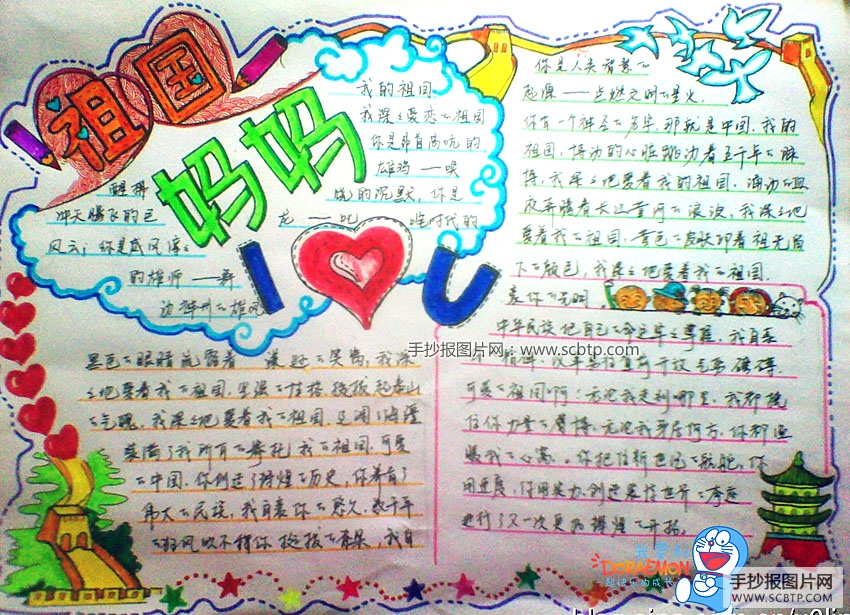 祖国
妈妈
I U
我的祖国
我深深爱恋的祖国
你是昂首高吭的
雄鸡——唤
的沉默,你是
冲天腾飞的巨
龙——叱 时代的
风云;你是威风凛凛
的雄师——舞
动神州的雄风
你是人类智慧的
起源——点燃文明的星火
你有一个神圣的名字,那就是中国,我的
祖国,博动的心脏跳动着五千年的脉
搏,我深深地爱着我的祖国,涌动的血
液奔腾着长江黄河的浪波,我深深地
爱着我的祖国,黄色的皮肤印着祖先留
下的颜色,我深深地爱着我的祖国.
手抄报图片网:www.scbtp.com
黑色的眼睛流露着 的笑窝,我深
深地爱着我的祖国,坚强的性格挺拔起泰山
的气魄,我深深地爱着我的祖国,辽阔的海疆
装满了我所有的寄托,我的祖国,可爱
的中国,你创造了辉煌的历史,你养育了
伟大的民族,我自豪你的悠久,数千年
的狂风吹不折你挺拔的脊梁,我自
豪你的光明
中华民族把自己的命运牢牢掌握,我自豪
可爱的祖国啊!无论我走到哪里,我都挽
住你力量的臂膀,无论我身居何方,你都温
暖我的心窝。你把住新世纪的航舵,你
用速度,你用实力,创造震惊世界的奇迹
进行了又一次更加辉煌的开拓.
DORAEMON
一起快乐的成长
手抄报图片网
WWW.SCBTP.COM